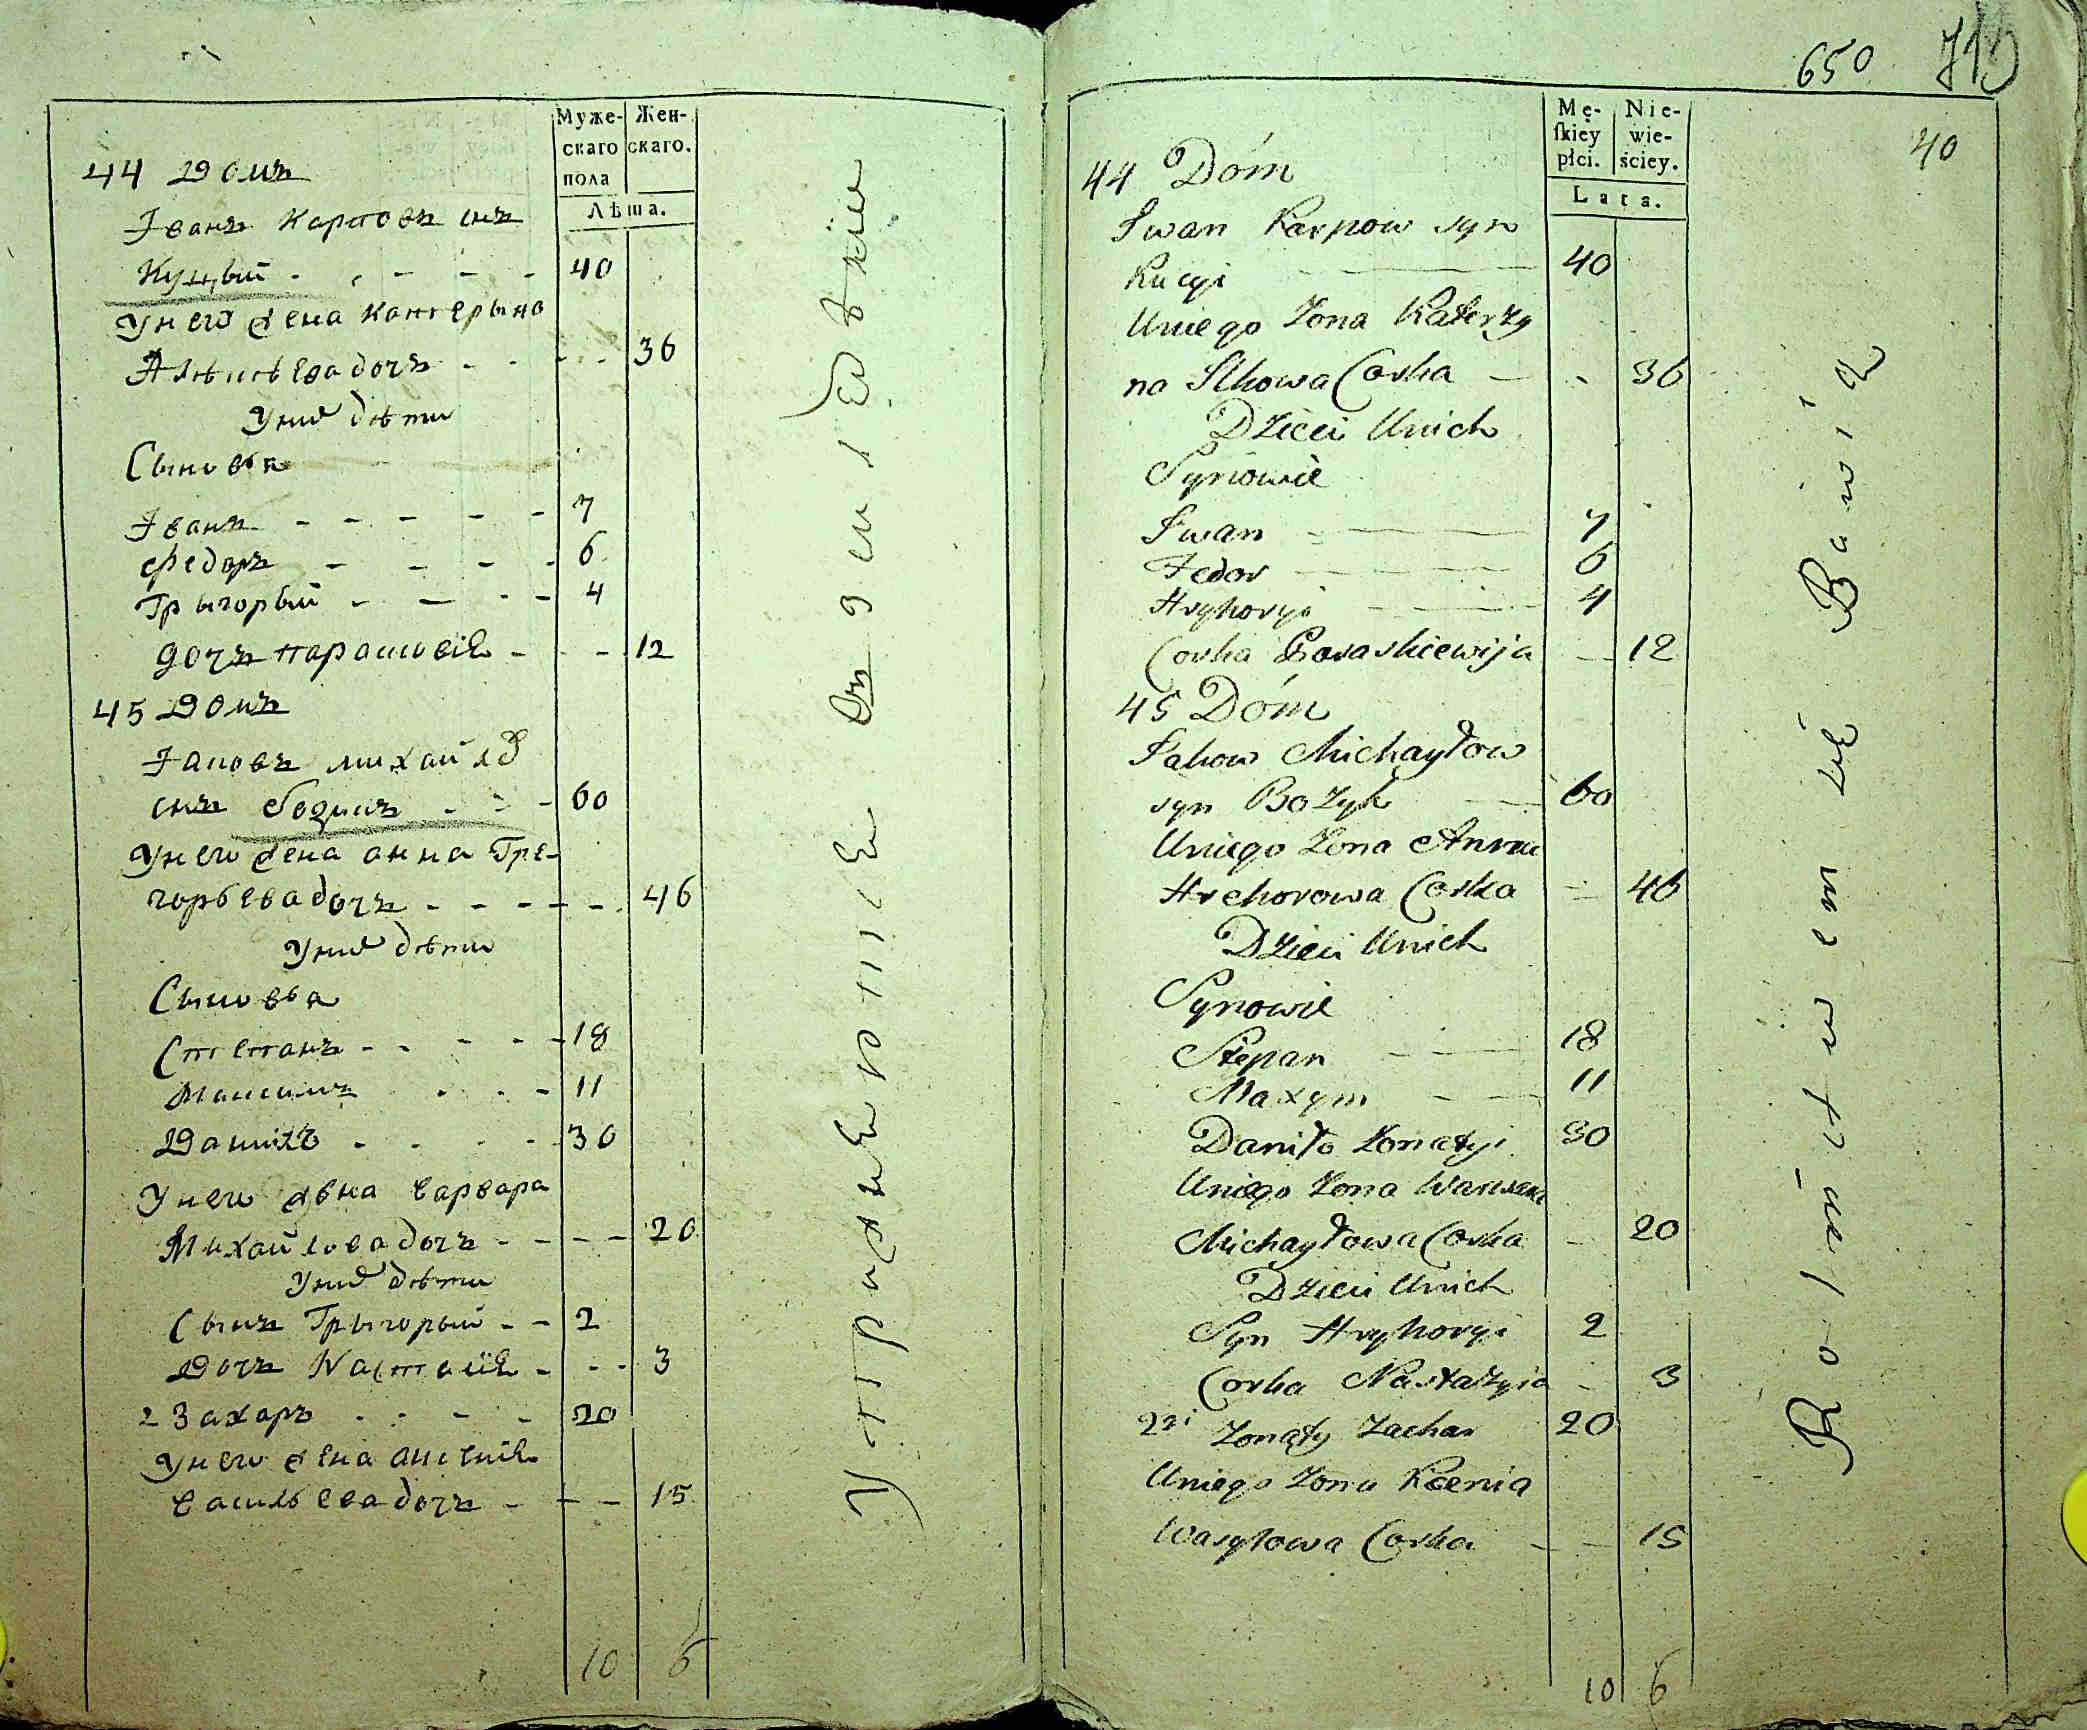 Муже- Жен-
скаго скаго.
пола
Лѣта.
44 Домъ
Іванъ Карповъ снъ
Куцый 40
У него жена Катерына
дочъ 36
У них дѣти
Сыновья
Іванъ 7
Федоръ 6
Грыгорый 4
Дочъ Парасковія 12
45 Домъ
Іаковъ Михайлов
снъ Бозыкъ 60
У него жена Анна Гре-
горьева дочъ 46
У них дѣти
Сыновья
Степанъ 18
Максимъ 11
Данило 30
У него жена Варвара
Михайлова дочъ 20
У них дѣти
Сынъ Грыгорый 2
Дочъ Настасія 3
2 Захаръ 20
У него жена Ксенія
Васильева дочъ 15
10 6
Упражненіе
Он земледѣліи
650
40
Mę- Nie-
ſkiey wie-
płci. ściey.
Lata.
44 Dóm
Iwan Karpow syn
Kucyi 40
Uniego Zona Katerzy
na Ilkowa Corka 36
Dzieci Unich
Synowie
Iwan 7
Fedor 6
Hryhoryi 4
Corka Paraskiewija 12
45 Dóm
Iakow Michayłow
syn Bozyk 60
Uniego Zona Anna
Hrehorowa Corka 46
Dzieci Unich
Synowie
Stepan 18
Maxym 11
Daniło Zonatyi 30
Uniego Zona Warwara
Michayłowa Corka 20
Dzieci Unich
Syn Hryhoryi 2
Corka Nastazyia 3
2gi Zonaty Zachar 20
Uniego Zona Ksenia
Wasylowa Corka 15
10 6
Rolnictwem się Bawią